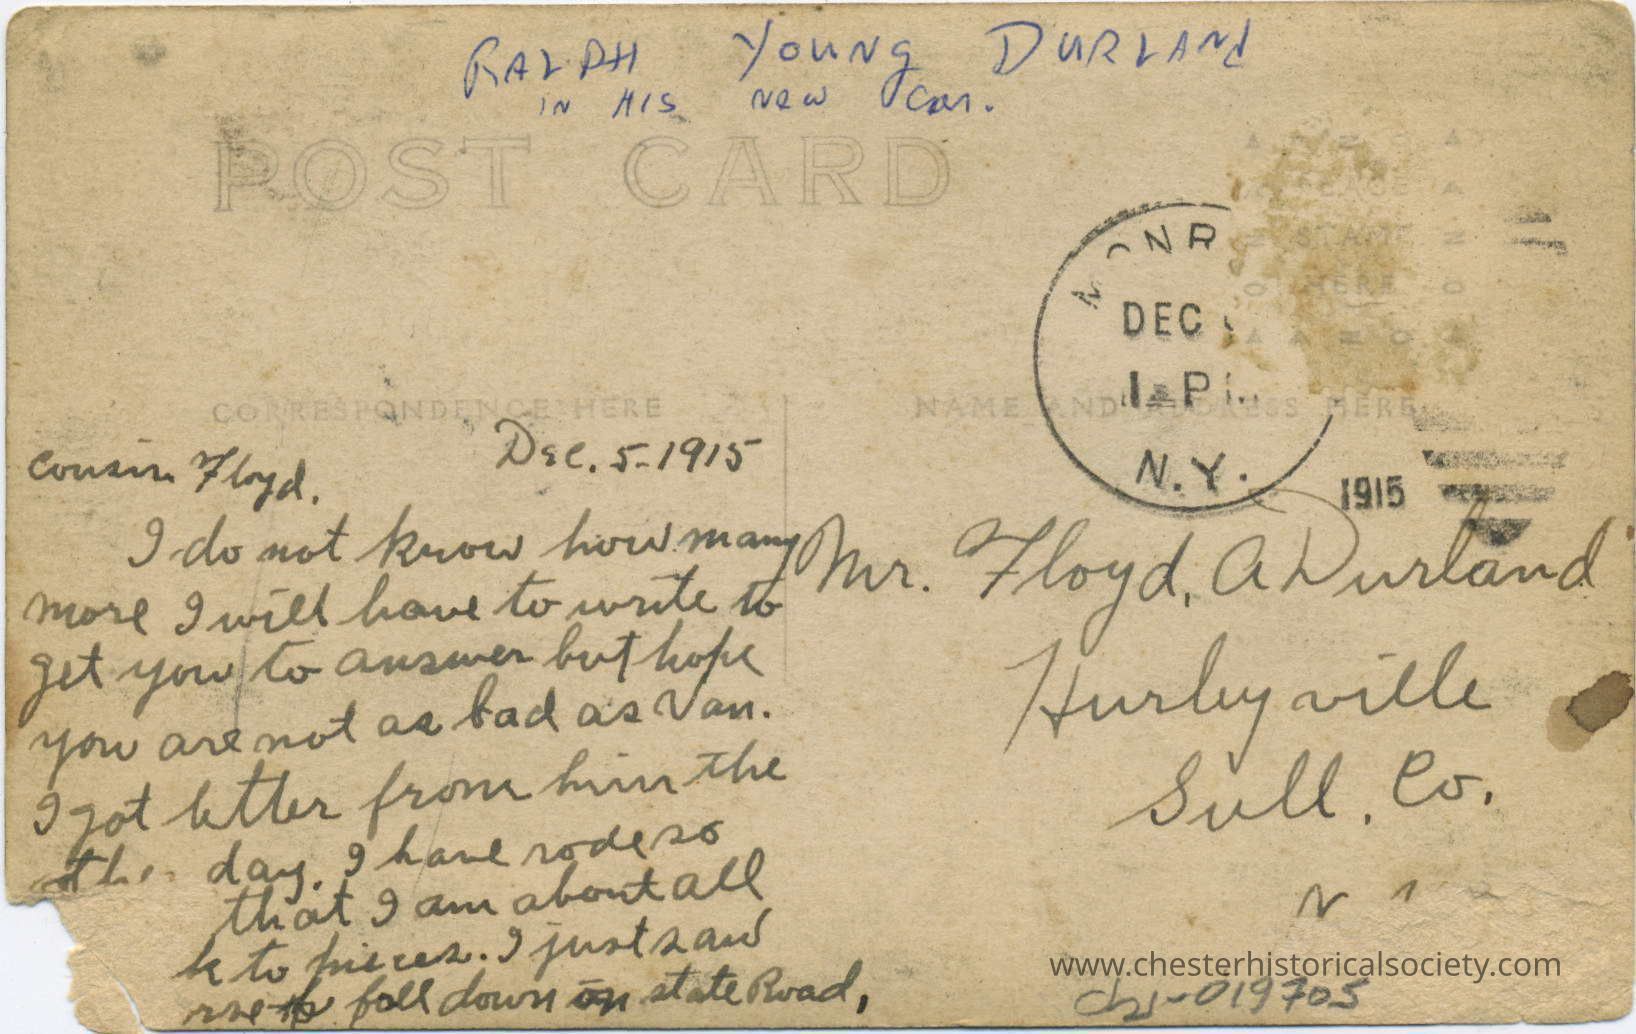 RALPH YOUNG DURLAND
IN HIS NEW Car.
POST CARD
PLACE
STAMP
HERE
MONR
DEC
1 P
N.Y.
1915
CORRESPONDENCE HERE
NAME AND ADDRESS HERE
Dec. 5-1915
Cousin Floyd.
I do not know how many
more I will have to write to
get you to answer but hope
you are not as bad as Van.
I got letter from him the
other day. I have rode so
that I am about all
k to pieces. I just saw
rse fall down on state Road,
Mr. Floyd, A Durland
Hurleyville
Sull. Co.
N
www.chesterhistoricalsociety.com
chs-019705